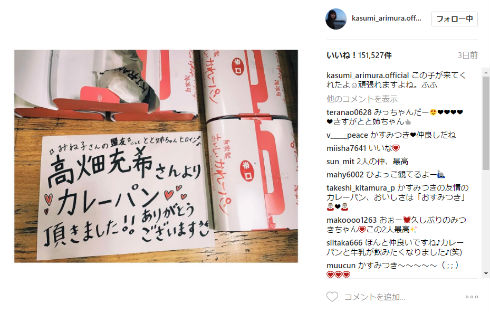 kasumi_arimura.offi...
フォロー中
いいね！151,527件
3日前
kasumi_arimura.official この子が来てく
れたよ☺頑張れますよね。ふふ
他のコメントを表示
teranao0628 みっちゃんだー😍❤❤❤❤
❤さすがとと姉ちゃん
v____peace かすみつき❤仲良しだね
miisha7641 いいな❤
sun_mit 2人の仲、最高
mahy6002 ひよっこ観てるよー
takeshi_kitamura_p かすみつきの友情の
カレーパン、おいしさは「おすみつき」
makoooo1263 おぉー❤久しぶりのみつ
きちゃん❤この2人最高✨
siitaka666 ほんと仲良いですね♪カレー
パンと牛乳が飲みたくなりました♪(笑)
muucun かすみつき〜〜〜〜〜（ ; ; ）
❤❤❤
コメントを追加...
みね子さんの
とと姉ちゃん
高畑充希さんより
♡カレーパン♡
頂きました!!
ありがとう
ございます
辛口
カレーパン